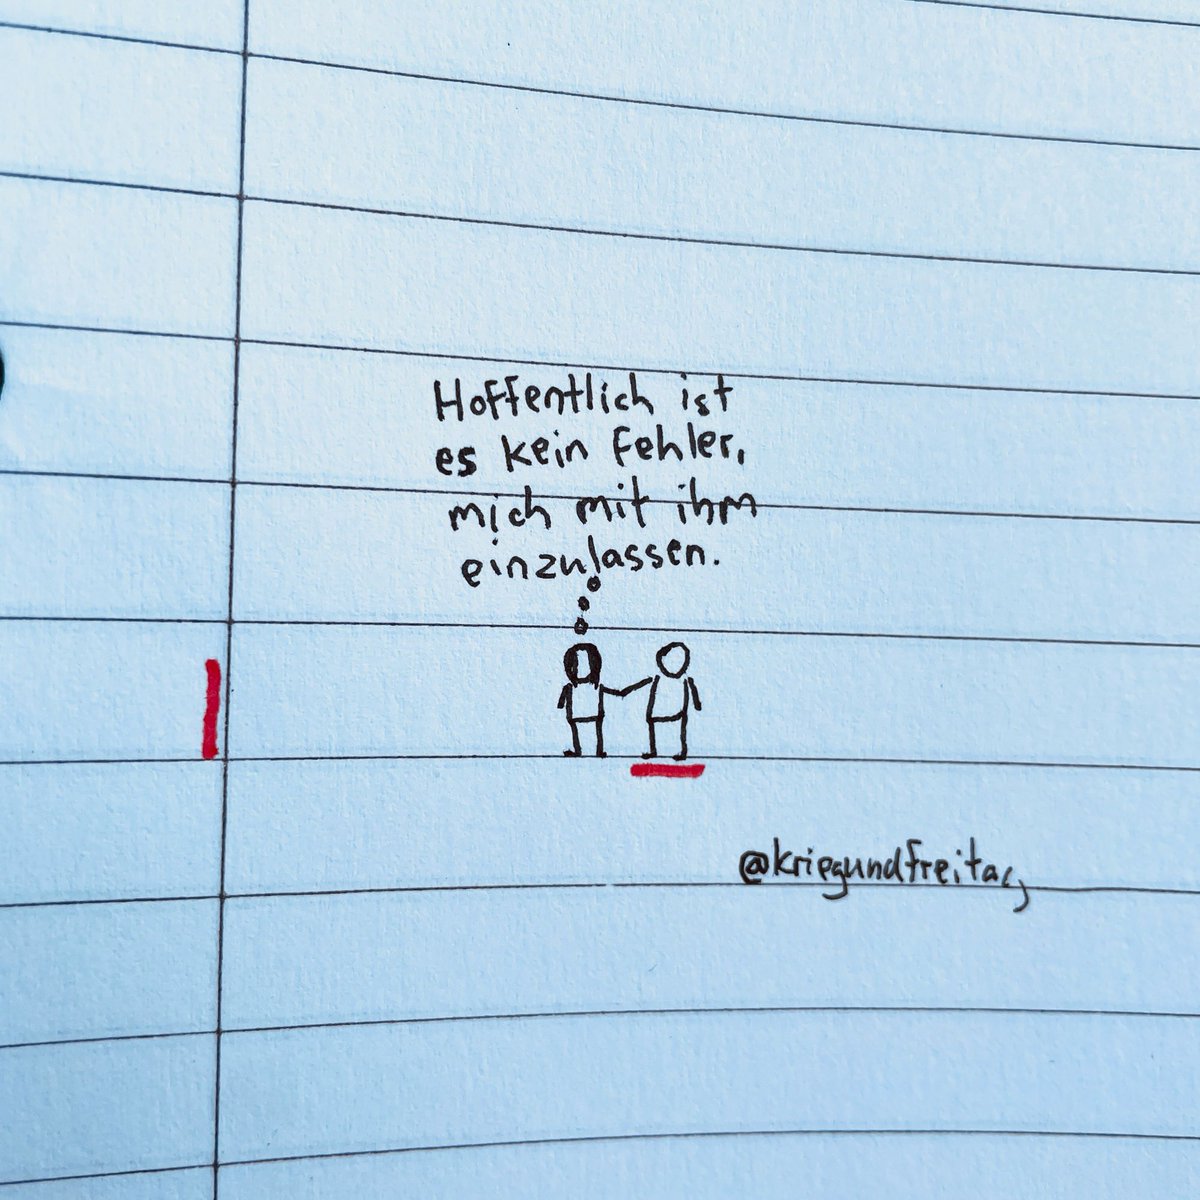 Hoffentlich ist
es kein Fehler,
mich mit ihm
einzulassen.
@kriegundfreitag